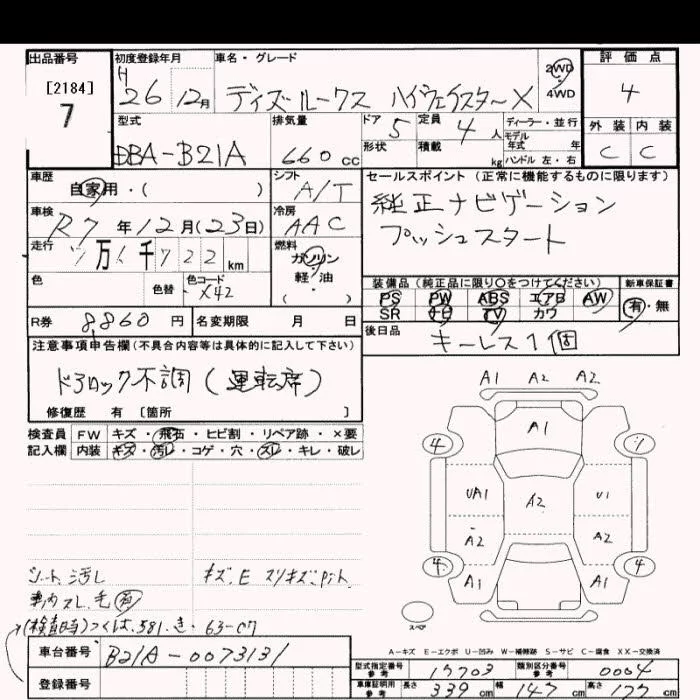 出品番号
[2184]
7
初度登録年月
H 26年 12月
車名・グレード
デイズルークス ハイウェイスターX
2WD
・
4WD
評価点
4
外装 内装
C C
型式
DBA-B21A
排気量
660 cc
ドア 5
定員 4 人
ディーラー・並行
モデル
年式 年
形状
積載 kg
ハンドル 左・右
車歴
自家用・( )
シフト
A/T
車検
R7 年 12月(23日)
冷房
AAC
走行
万 千 722 km
燃料
ガソリン
軽・油
( ・ )
色
色替
色コード
X42
R券 8,860 円
名変期限 月 日
セールスポイント(正常に機能するものに限ります)
純正ナビゲーション
プッシュスタート
装備品(純正品に限り〇をつけてください)
新車保証書
PS PW ABS エアB AW
SR ナビ TV カワ
有・無
後日品
キーレス1個
注意事項申告欄(不具合内容等は具体的に記入して下さい)
ドアロック不調(運転席)
修復歴 有 [箇所 ]
検査員 FW キズ・飛石・ヒビ割・リペア跡・×要
記入欄 内装 キズ・汚レ・コゲ・穴・スレ・キレ・破レ
シート汚レ
キズ、E スリキズ
車内スレ、毛 有
(検査時)つくば 581 き 63-07
車台番号 B21A-0073131
登録番号
A1 A2 A2
A1
4
1
UA1
A2
U1
A2
A2
4
4
A1
A1
スペア
A-キズ E-エクボ U-凹み W-補修跡 S-サビ C-腐食 XX-交換済
型式指定番号
参考
17703
類別区分番号
参考
0004
車庫証明用
参考
長さ 339 cm
幅 147 cm
高さ 177 cm